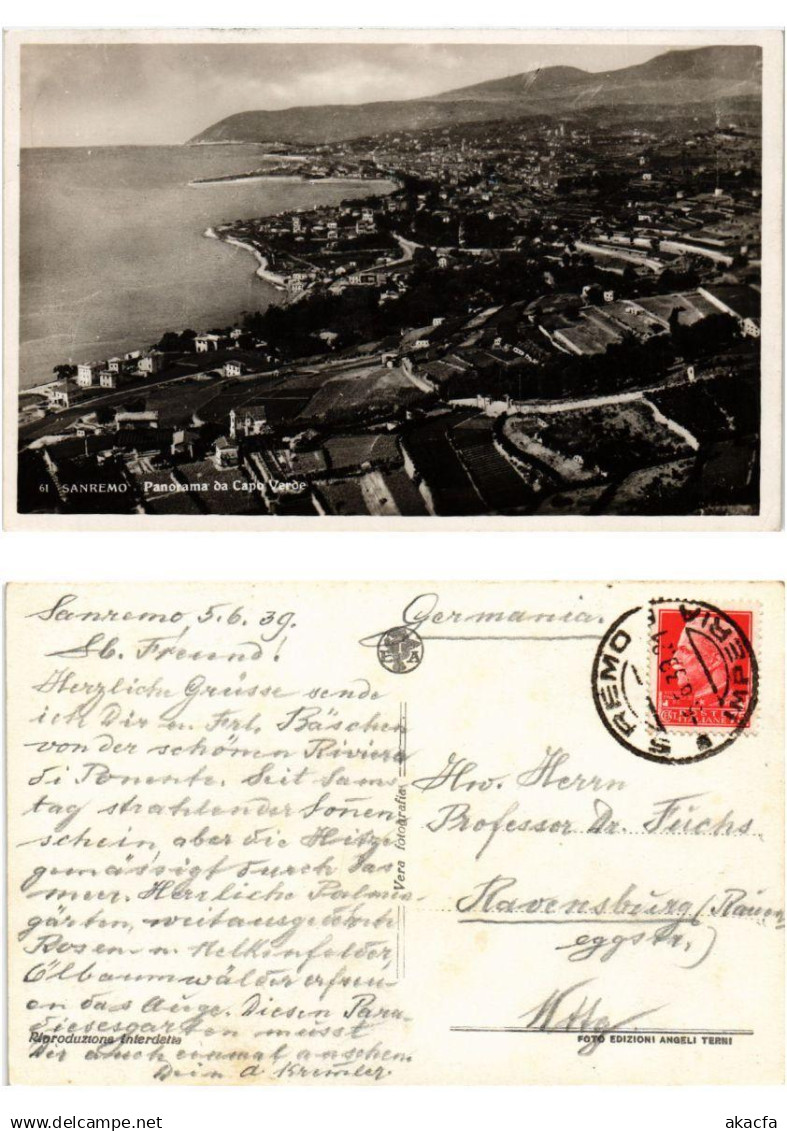 61 SANREMO . Panorama da Capo Verde
Sanremo, 5.6.39.
Lb. Freund!
Herzliche Grüsse sende
ich Dir u. Frl. Bäschen
von der schönen Riviera
di Ponente. Seit Sams-
tag strahlender Sonnen
schein, aber die Hitze
gemässigt durch das
Meer. Herrliche Palmen-
gärten, weitausgedehnte
Rosen- u. Nelkenfelder,
Ölbaumwälder erfreu-
en das Auge. Diesen Para-
diesesgarten müsst
Ihr auch einmal anschen.
Dein
Riproduzione interdetta
Vera fotografia
EA
Germania.
S REMO
IMPERIA
POSTE
ITALIANE
Hw. Herrn
Professor Dr. Fuchs
Ravensburg (Rauen-
eggstr.)
Wttg
FOTO EDIZIONI ANGELI TERNI
akacfa
www.delcampe.net